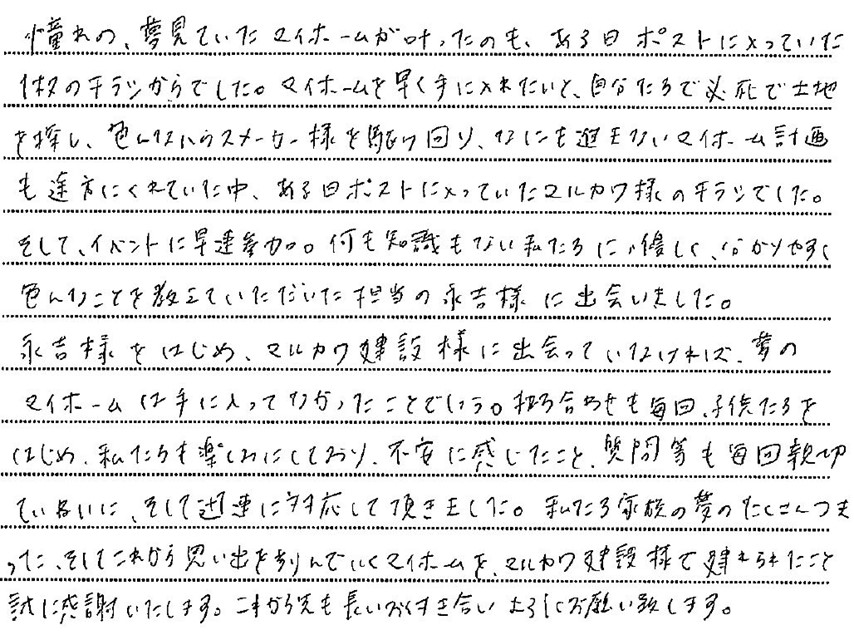 憧れの、夢見ていたマイホームが叶ったのも、ある日ポストに入っていた
1枚のチラシからでした。マイホームを早く手に入れたいと、自分たちで必死で土地
を探し、色んなハウスメーカー様を駆け回り、なにも進まないマイホーム計画
も途方にくれていた中、ある日ポストに入っていたマルカワ様のチラシでした。
そして、イベントに早速参加。何も知識もない私たちに、優しく、分かりやすく
色んなことを教えていただいた担当の永吉様に出会いました。
永吉様をはじめ、マルカワ建設様に出会っていなければ、夢の
マイホームは手に入ってなかったことでしょう。打ち合わせも毎回、子供たちを
はじめ、私たちも楽しみにしており、不安に感じたこと、質問等も毎回親切
ていねいに、そして迅速に対応して頂きました。私たち家族の夢のたくさんつま
った、そしてこれから思い出を刻んでいくマイホームを、マルカワ建設様で建れられたこと
誠に感謝いたします。これから先も長いお付き合いよろしくお願い致します。